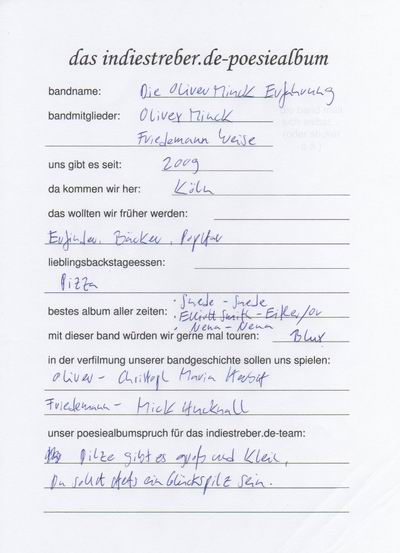 das indiestreber.de-poesiealbum
bandname: Die Oliver Minck Erfahrung
bandmitglieder: Oliver Minck
Friedemann Weise
uns gibt es seit: 2009
da kommen wir her: Köln
das wollten wir früher werden:
Erfinder, Bäcker, Popstar
lieblingsbackstageessen:
Pizza
bestes album aller zeiten: · Suede - Suede
· Elliott Smith - Either/or
· Nena - Nena
mit dieser band würden wir gerne mal touren: Blur
in der verfilmung unserer bandgeschichte sollen uns spielen:
Oliver - Christoph Maria Herbst
Friedemann - Mick Hucknall
unser poesiealbumspruch für das indiestreber.de-team:
Pilze gibt es groß und klein,
Du sollst stets ein Glückspilz sein.